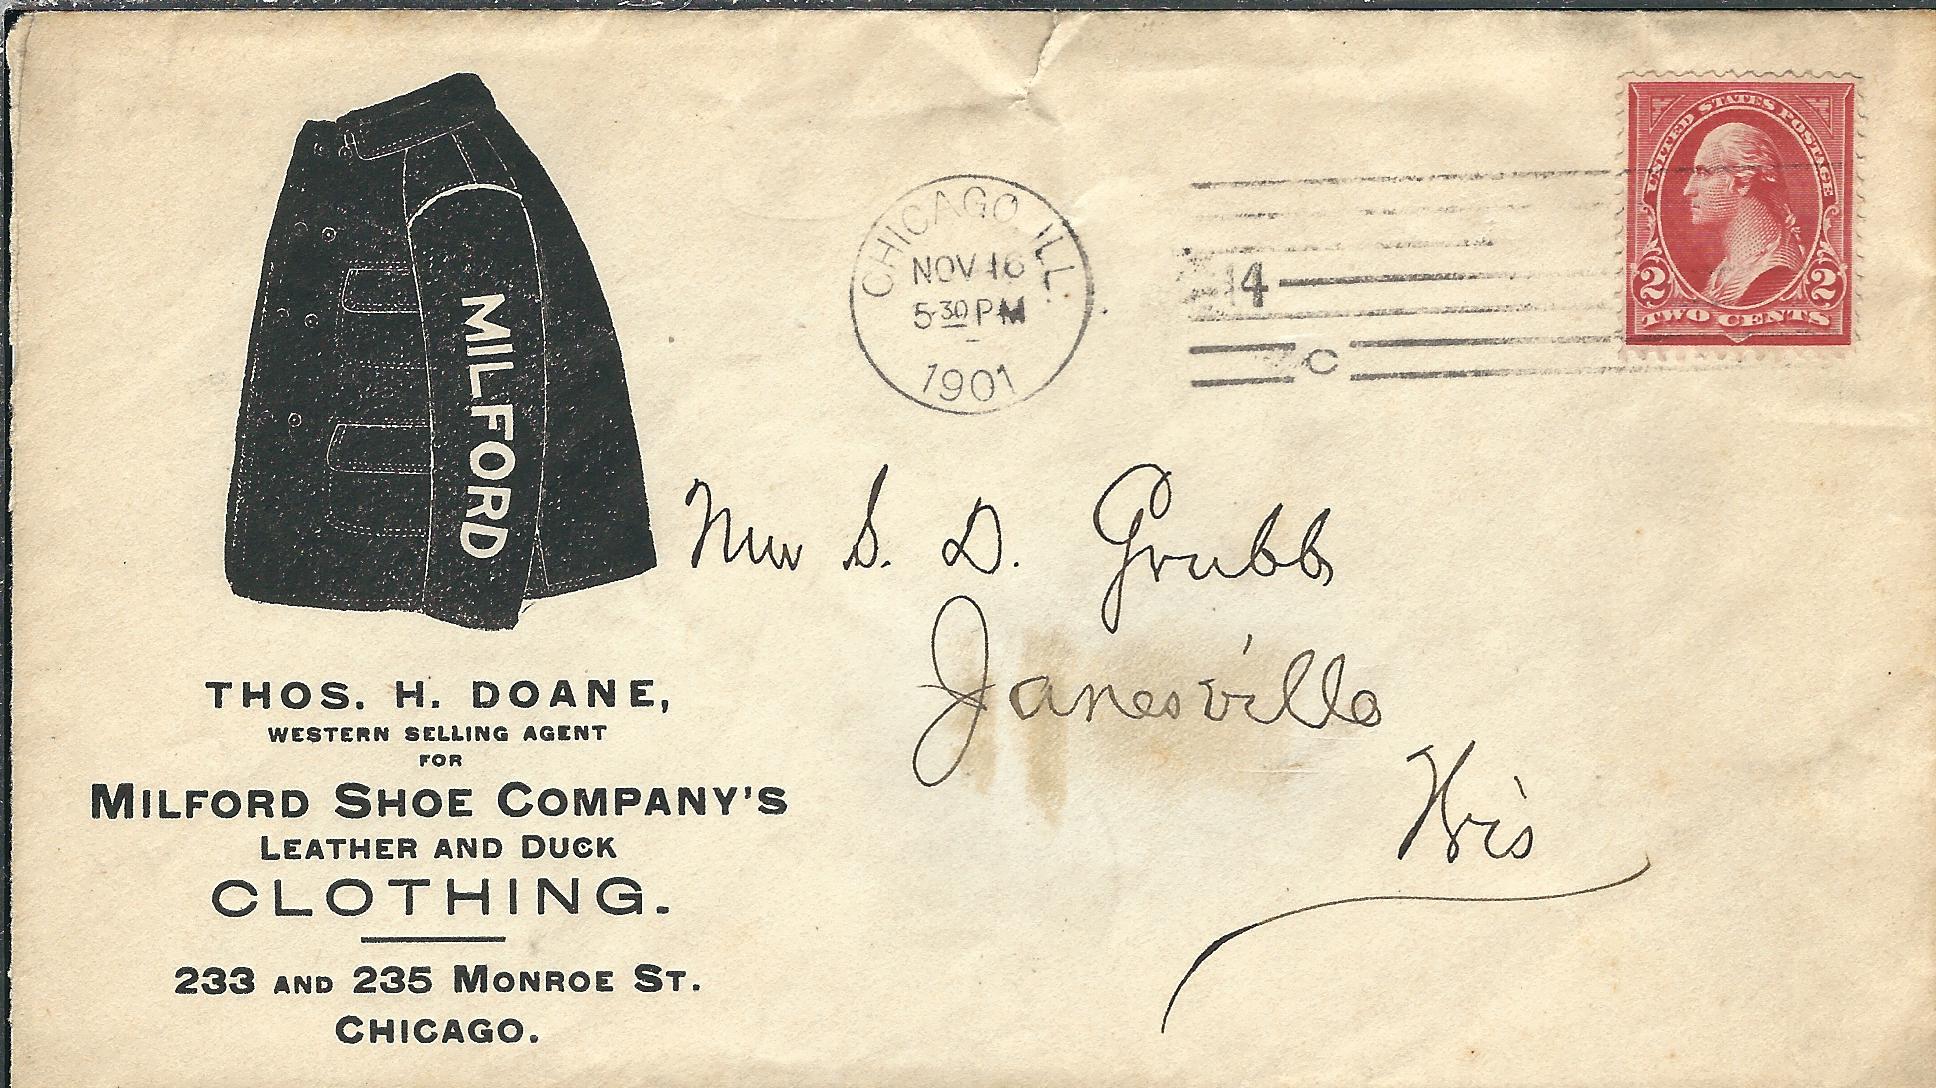 MILFORD
THOS. H. DOANE,
WESTERN SELLING AGENT
FOR
MILFORD SHOE COMPANY'S
LEATHER AND DUCK
CLOTHING.
233 AND 235 MONROE ST.
CHICAGO.
CHICAGO, ILL.
NOV 16
5-30 PM
1901
4
C
UNITED STATES POSTAGE
2 2
TWO CENTS
S. D. Grubb
Janesville
Wis